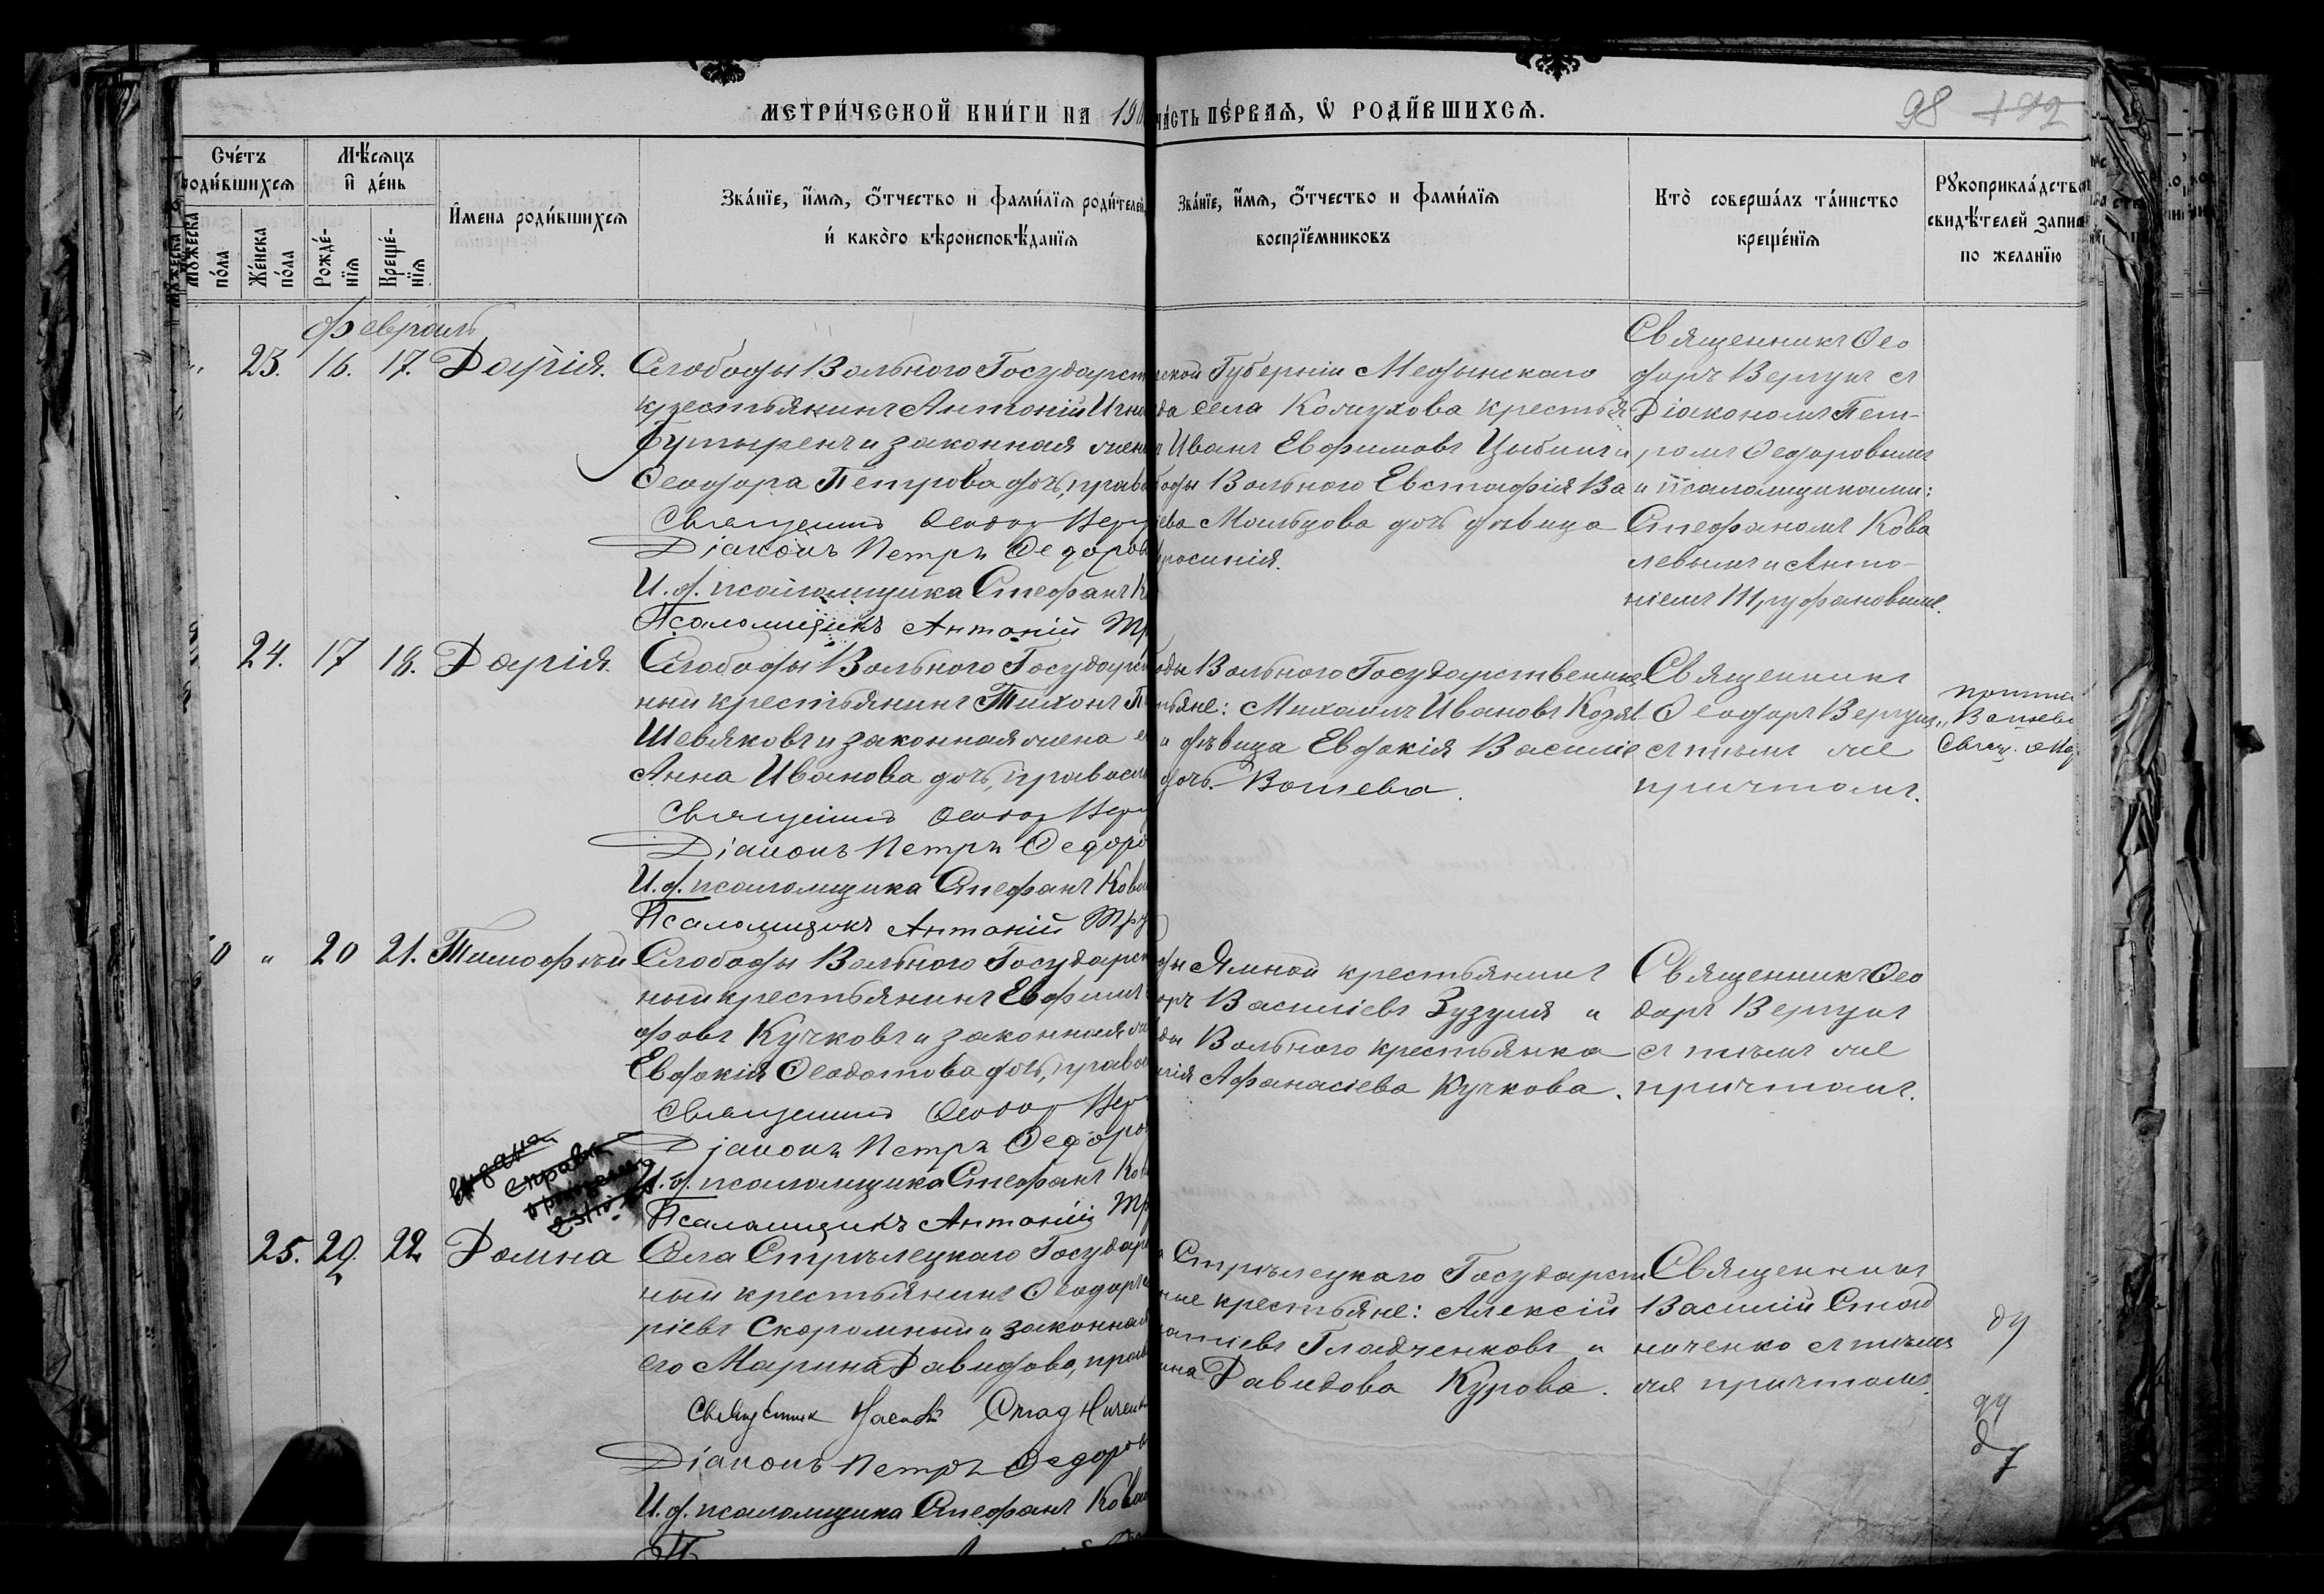 МЕТРИ́ЧЕСКОЙ КНИ́ГИ НА 190
ЧА́СТЬ ПЕ́РВАѦ, Ѡ҆ РОДИ́ВШИХСѦ.
98 192
Сче́тъ родившихсѧ
Мѣ́сѧцъ и де́нь
Имена роди́вшихсѧ
Зва́нїе, и́мѧ, ѻ́тчество и фами́лїѧ роди́телей,
и како́го вѣроисповѣ́данїѧ
Мꙋжеска по́ла
Же́нска по́ла
Рожде́-нїѧ
Креще́-нїѧ
Зва́нїе, и́мѧ, ѻ́тчество и фами́лїѧ
воспрїе́мниковъ
Кто̀ соверша́лъ та́инство
креще́нїѧ
Рꙋкоприкла́дство
свидѣ́телей запи
по желанїю
февраль
„ 23. 16. 17. Дарія.
Слободы Вольного Государст
крестьянинъ Антоній Игна
Бутыренъ и законная жен
Ѳеодора Петрова дочь, прав
Священникъ Ѳеодор Верг
Діаконъ Петръ Ѳедоров
И. д. псаломщика Стефанъ К
Псаломщикъ Антоній Тр
ской Губерніи Медынскаго
да села Кожухова крестья
Иванъ Евфимовъ Цыбинъ и
боды Вольного Евстафія Ва
ева Мальцова дочь дѣвица
фросинія.
Священникъ Ѳео
доръ Вергунъ съ
Діакономъ Пет-
ромъ Ѳедоровымъ
и псаломщиками:
Стефаномъ Кова
левымъ и Анто-
ніемъ Труфановымъ.
24. 17 18. Дарія.
Слободы Вольного Государст
ный крестьянинъ Тихонъ П
Шевяковъ и законная жена е
Анна Иванова дочь, правосл
Священникъ Ѳеодор Верг
Діаконъ Петръ Ѳедоро
И. д. псаломщика Стефанъ Кова
Псаломщикъ Антоній Тру
оды Вольного Государственные
тьяне: Михаилъ Ивановъ Козяв
и дѣвица Евдокія Василіе
дочь Вошева.
Священникъ
Ѳеодоръ Вергунъ
съ тѣмъ же
причтомъ.
Вошева
Свящ. Ѳео
0 „ 20 21. Тимофѣй
Слободы Вольного Государст
ный крестьянинъ Евфимъ
фовъ Кучковъ и законная ж
Евдокія Ѳеодотова дочь, правос
Священникъ Ѳеодор Верг
Діаконъ Петръ Ѳедоров
И. д. псаломщика Стефанъ Кова
Псаломщикъ Антоній Тр
ды Ямной крестьянинъ
оръ Василіевъ Зузуля и
ды Вольного крестьянка
Афанасіева Кучкова.
Священникъ Ѳео
доръ Вергунъ
съ тѣмъ же
причтомъ.
выдана
справка
25. 20. 22 Домна
Села Стрѣлецкаго Государс
ный крестьянинъ Ѳеодоръ
ріевъ Скоромный и законная
его Марина Давидова, прав
Священник Василій Стадничен
Діаконъ Петръ Ѳедоров
И. д. псаломщика Стефанъ Кова
Стрѣлецкаго Государст
ные крестьяне: Алексій
Гладченковъ и
Давидова Курова.
Священникъ
Василій Стад
ниченко съ тѣмъ
же причтомъ.